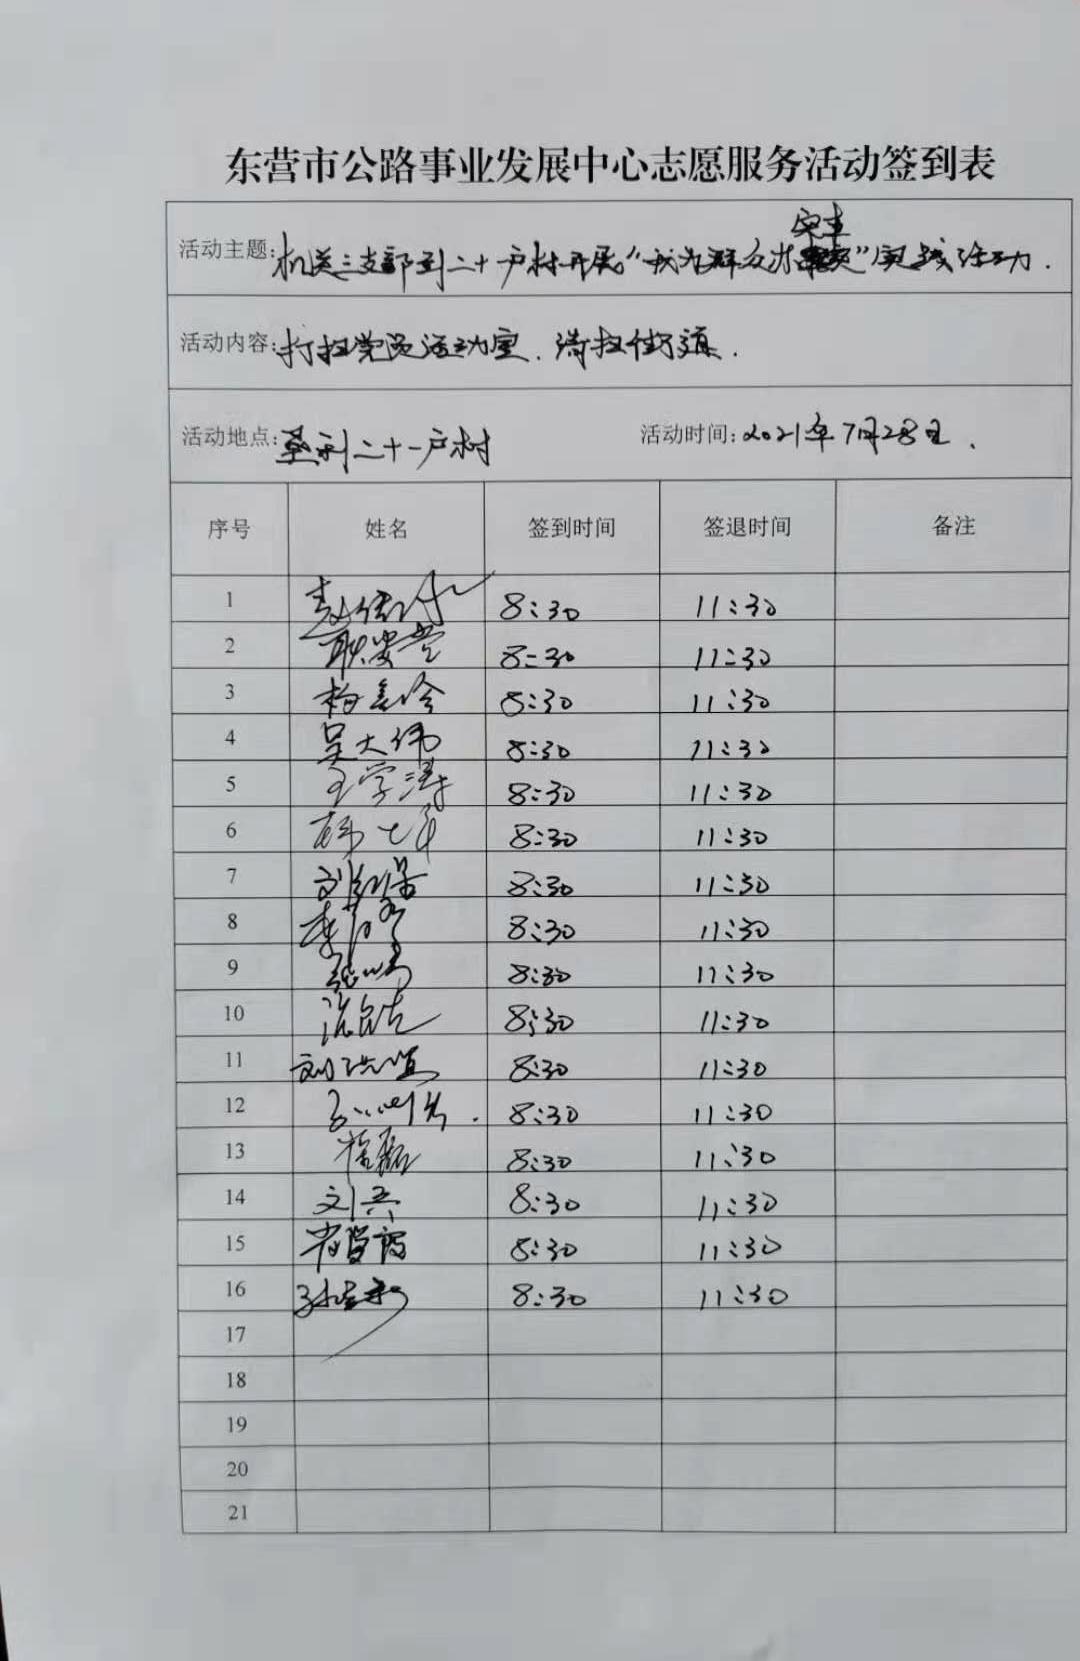 东营市公路事业发展中心志愿服务活动签到表
活动主题:机关三支部到二十一户村开展“我为群众办实事”实践活动.
活动内容:打扫党员活动室、清扫街道.
活动地点:垦利二十一户村 活动时间:2021年7月28日.
序号 姓名 签到时间 签退时间 备注
1 8:30 11:30
2 8:30 11:30
3 8:30 11:30
4 吴大伟 8:30 11:30
5 王学涛 8:30 11:30
6 8:30 11:30
7 8:30 11:30
8 8:30 11:30
9 8:30 11:30
10 8:30 11:30
11 8:30 11:30
12 8:30 11:30
13 8:30 11:30
14 刘兵 8:30 11:30
15 8:30 11:30
16 8:30 11:30
17
18
19
20
21